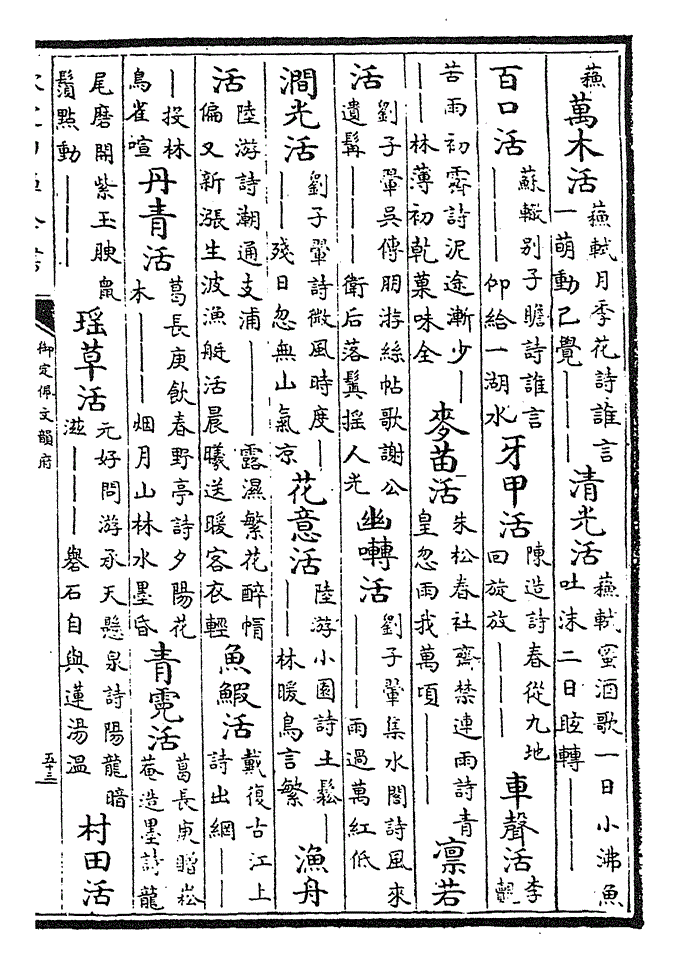 蘓萬木活蘓軾月季花詩誰言一萌動已覺———清光活蘓軾蜜酒歌一日小沸魚吐沫二日眩轉———
百口活蘇轍别子瞻詩誰言———仰給一湖水牙甲活陳造詩春從九地———回旋放車聲活李覯
苦雨初霽詩泥途漸少———林薄初乾菓味全麥苗活朱松春社齋禁連雨詩青皇忽雨我萬頃———凛若
活劉子翬吳傳朋游絲帖歌謝公遺髯———衛后落鬒揺人光幽囀活劉子翬集水閣詩風來———雨過萬紅低
澗光活劉子翬詩微風時度———殘日忽無山氣凉花意活陸游小園詩土鬆———林暖鳥言繁漁舟
活陸游詩潮通支浦———露濕繁花醉帽偏又新漲生波漁艇活晨曦送暖客衣輕魚鰕活戴復古江上詩出網———
——投林鳥雀喧丹青活葛長庚飲春野亭詩夕陽花木———烟月山林水墨昏青霓活葛長庚贈崧菴造墨詩龍
尾磨開紫玉腴鼠鬚點動———瑶草活元好問游承天懸泉詩陽龍暗滋———礜石自與蓮湯温村田活
御定佩文韻府
五十三